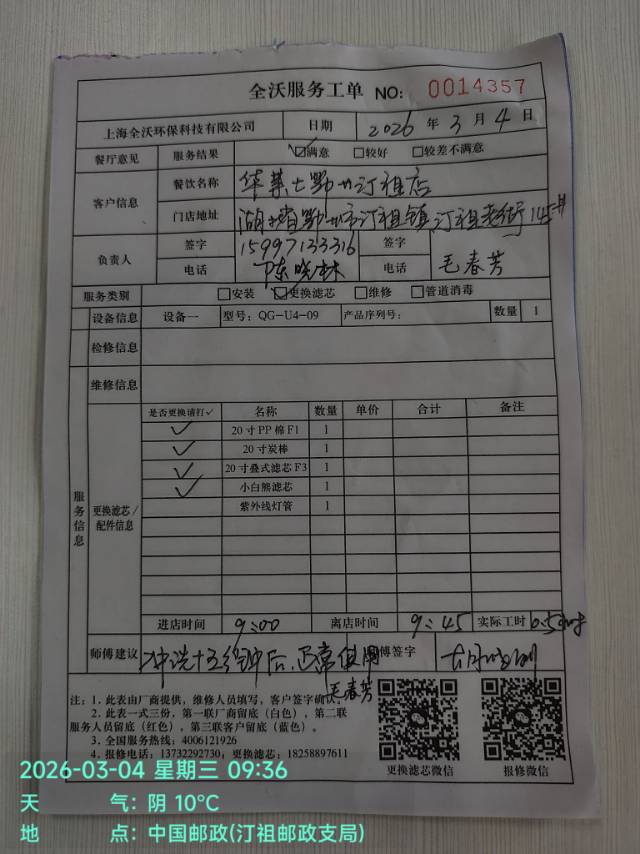 全沃服务工单 NO: 0014357
上海全沃环保科技有限公司 日期 2026 年 3 月 4 日
餐厅意见 服务结果 ☑满意 □较好 □较差不满意
客户信息 餐饮名称 华莱士鄂州汀祖店
门店地址 湖北省鄂州市汀祖镇汀祖老街145#
负责人 签字 15997133316 签字 毛春芳
电话 陈晓林 电话
服务类别 □安装 ☑更换滤芯 □维修 □管道消毒
设备信息 设备一 型号: QG-U4-09 产品序列号: 数量 1
检修信息
维修信息
服务信息 更换滤芯/配件信息
是否更换请打✓ 名称 数量 单价 合计 备注
✓ 20寸PP棉F1 1
✓ 20寸炭棒 1
✓ 20寸叠式滤芯F3 1
✓ 小白熊滤芯 1
紫外线灯管 1
进店时间 9:00 离店时间 9:45 实际工时
师傅建议 冲洗十五分钟后,正常使用 师傅签字
毛春芳
注: 1. 此表由厂商提供, 维修人员填写, 客户签字确认。
2. 此表一式三份, 第一联厂商留底(白色), 第二联
服务人员留底(红色), 第三联客户留底(蓝色)。
3. 全国服务热线: 4006121926
4. 报修电话: 13732292730, 更换滤芯: 18258897611
更换滤芯微信 报修微信
2026-03-04 星期三 09:36
天 气: 阴 10℃
地 点: 中国邮政(汀祖邮政支局)